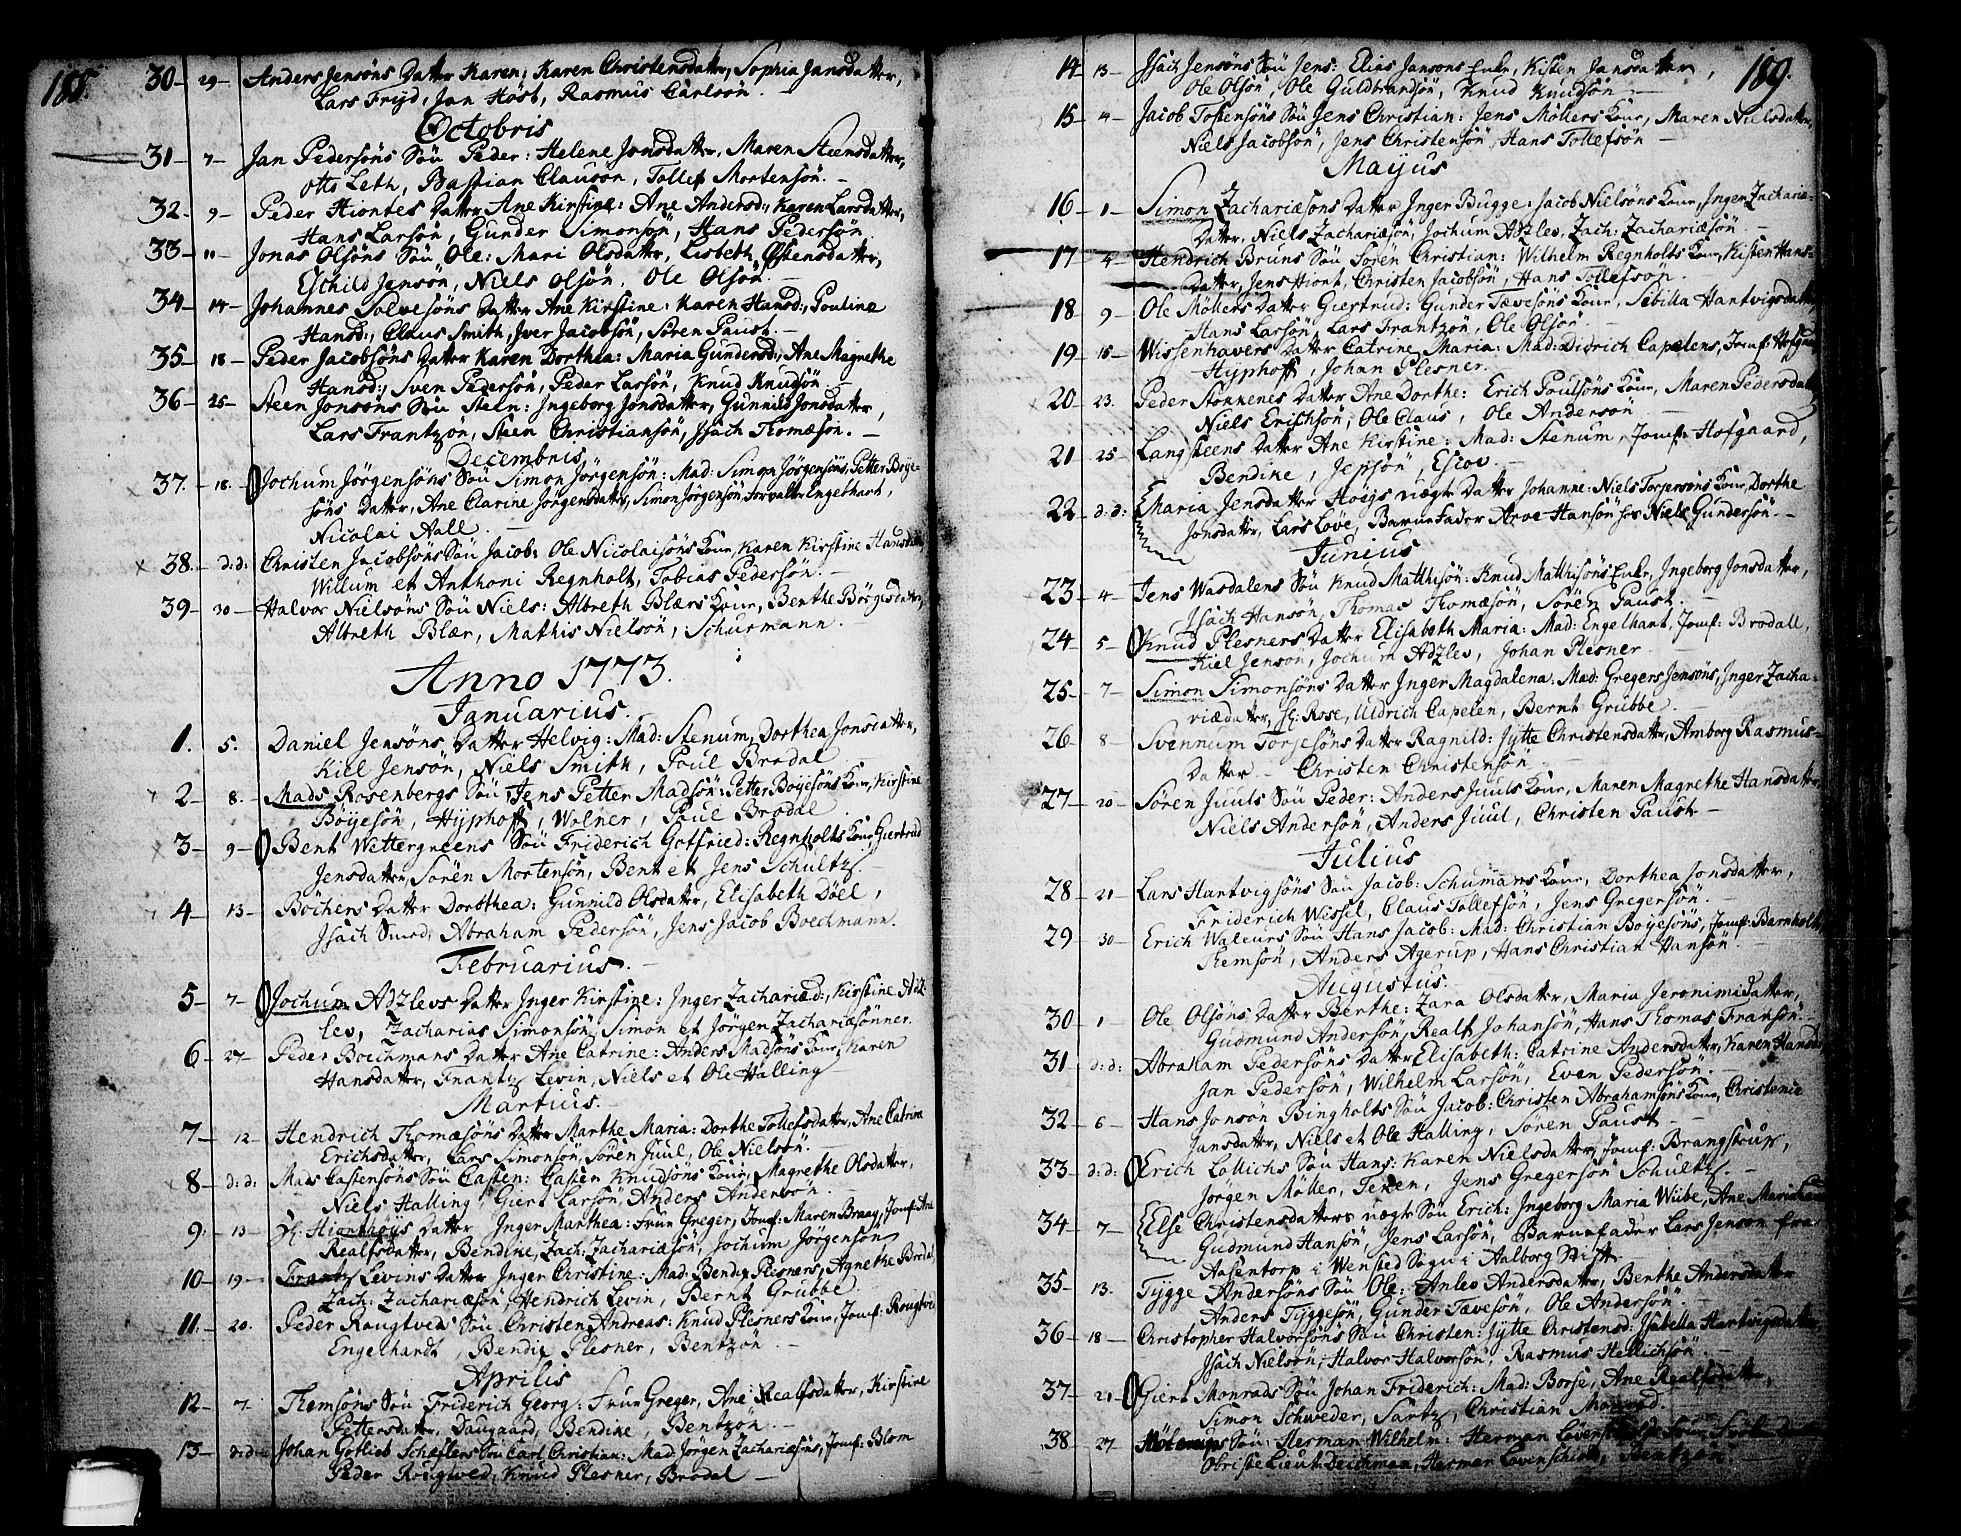 185.
30 - 29 - Anders Jensöns Datter Karen: Karen Christensdatter, Sophia Jansdatter,
Lars Fryd, Jan Höst, Rasmus Carlsön.
Octobris
31 - 7 - Jan Pedersöns Sön Peder: Helene Jonsdatter, Maren Steensdatter,
Otto Leth, Bastian Clausön, Tollef Mortensön. -
32 - 9 - Peder Hiontes Datter Ane Kirstine: Ane Andersd:, Karen Larsdatter,
Hans Larsön, Gunder Simonsön, Hans Pedersön.
33 - 11 - Jonas Olsöns Sön Ole: Mari Olsdatter, Lisbeth Østensdatter,
Eschild Jensön, Niels Olsön, Ole Olsön.
34 - 14 - Johannes Solvesöns Datter Ane Kirstine: Karen Hansd:, Pouline
Hansd:, Claus Smith, Jver Jacobsön, Sören Paust. -
35 - 18 - Peder Jacobsöns Datter Karen Dorthea: Maria Gundersd:, Ane Magrethe
Hansd:, Sven Pedersön, Peder Larsön, Knud Knudsön -
36 - 25 - Steen Jonsöns Sön Steen: Ingeborg Jonsdatter, Gunnild Jonsdatter,
Lars Frantzön, Steen Christiansön, Jsach Thomæsön. -
Decembris
37. - 18. - Jochum Jörgensöns Sön Simon Jörgensön: Mad: Simon Jörgensöns, Petter Böye-
söns Datter, Ane Clarine Jörgensdatter, Simon Jörgensön Forvalter Engelhart,
Nicolai Aall -
38. - d:d: Christen Jacobsöns Sön Jacob: Ole Nicolaisöns Kone, Karen Kirstine Hansdatter
Willum et Anthoni Regnholt, Tobias Pedersön. -
39 - 30 - Halvor Nielsöns Sön Niels: Albreth Blærs Kone, Benthe Börgesdatter,
Albreth Blær, Mathis Nielsön, Schurmann.
Anno 1773.
Januarius.
1. 5. Daniel Jensöns Datter Helvig: Mad: Stenum, Dorthea Jonsdatter,
Kiel Jensön, Niels Smith, Poul Brodal
2 - 8. Mads Rosenbergs Sön Jens Petter Madsön: Petter Böyesöns Kone, Kirstine
Böyesön, Hyphoff, Wolner, Paul Brodal
3 - 9 - Bent Wettergreens Sön Friderich Gotfried: Regnholts Kone, Giertrud
Jensdatter, Sören Mortensön, Bent et Jens Schultz.
4 - 13 - Böchers Datter Dorothea: Gunnild Olsdatter, Elisabeth Döel,
Jsach Smed, Abraham Pedersön, Jens Jacob Boechmann.
Februarius. -
5 - 7 - Jochum Adzlevs Datter Inger Kirstine: Inger Zachariæd:, Kirstine Adz-
lev, Zacharias Simonsön, Simon et Jörgen Zachariæsönner.
6 - 27 - Peder Boechmans Datter Ane Catrine: Anders Madsöns Kone, Karen
Hansdatter, Frantz Levin, Niels et Ole Halling
Martius. -
7 - 12 - Hendrich Thomæsöns Datter Marthe Maria: Dorthe Tollefsdatter, Ane Catrine
Erichsdatter, Lars Simonsön, Sören Juul, Ole Nielsön.
8 - d:d: Mads Castensöns Sön Casten: Casten Knudsöns Kone, Magrethe Olsdatter,
Niels Halling, Giert Larsön, Anders Andersön.
9. - 13 - Hr. Hionthöys Datter Inger Marthea: Frue Greger, Jomf: Maren Braag, Jomf: Ane
Realfsdatter, Bendike, Zach: Zachariæsön, Jochum Jörgensön
10 - 19 - Frantz Levins Datter Inger Christine: Mad: Bendix Plesners, Agnethe Brodal,
Zach: Zachariæsön, Hendrich Levin, Bernt Grubbe.
11. - 20. Peder Rougtveds Sön Christen Andreas: Knud Plesners Kone, Jomf: Rougtved
Engelhardt, Bendix Plesner, Bentzön. -
Aprilis
12 - 7. Themsöns Sön Friderich Georg: Frue Greger, Ane Realfsdatter, Kirstine
Pettersdatter, Daugaard, Bendike, Bentzön. -
13 - d:d: Johan Gotlieb Schæflers Sön Carl Christian: Mad Jörgen Zachariæsöns, Jomf: Blom
Peder Rougwed, Knud Plesner, Brodal -
189.
14 - 13 - Jsach Jensöns Sön Jens: Elias Jansons Enke, Kisten Jansdatter,
Ole Olsön, Ole Guldbrandsön, Knud Knudsön -
15 - 4 - Jacob Tostensöns Sön Jens Christian: Jens Möllers Kone, Maren Nielsdatter,
Niels Jacobsön, Jens Christensön, Hans Tollefsön -
Mayus
16 - 1 - Simon Zachariæsöns Datter Inger Bugge: Jacob Nielsöns Kone, Inger Zachariæ-
Datter, Niels Zachariæsön, Jochum Adzlev, Zach: Zachariæsön. -
17 - 4 - Hendrich Bruns Sön Sören Christian: Wilhelm Regnholts Kone, Kisten Hans-
Datter, Jens Hiont, Christen Jacobsön, Hans Tollefsön.
18 - 9 - Ole Möllers Datter Giertrud: Gunder Tævesöns Kone, Sibilla Hantvigsdatter,
Hans Larsön, Lars Frantzön, Ole Olsön.
19 - 15 - Wissenhavers Datter Catrine Maria: Mad: Didrich Capelens, Jomf: Hofgaard
Hyphoff, Johan Plesner.
20 - 23. Peder Stokkenes Datter Ane Dorthe: Erich Poulsöns Kone, Maren Pedersdatter,
Niels Erichsön, Ole Claus, Ole Andersön -
21 - 25 - Langsteens Datter Ane Kirstine: Mad: Stenum, Jomf: Hofgaard,
Bendike, Jepsön, Escov. -
22 - d:d: Maria Jensdatter Höeys uægte Datter Johanne: Niels Torjersöns Kone, Dorthe
Jonsdatter, Lars Löve, BarneFader Arve Hansön hos Niels Gundersön. -
Junius
23 - 4 - Jens Wasdalens Sön Knud Matthisön: Knud Matthisöns Enke, Ingeborg Jonsdatter,
Jsach Hansön, Thomas Thomæsön, Sören Paust. -
24 - 5 - Knud Plesners Datter Elisabeth Maria: Mad: Engelhart, Jomf: Brodall,
Kiel Jensön, Jochum Adzlev, Johan Plesner
25 - 7 - Simon Simonsöns Datter Inger Magdalena: Mad: Gregers Jensöns, Inger Zacha-
riædatter, Hr: Rose, Uldrich Capelen, Bernt Grubbe. -
26 - 8 - Svennum Torjesöns Datter Ragnild: Jytte Christensdatter, Amborg Rasmus-
Datter - Christen Christensön -
27 - 20 - Sören Juuls Sön Peder: Anders Juuls Kone, Maren Magrethe Hansdatter,
Niels Andersön, Anders Juul, Christen Paust -
Julius
28 - 21 - Lars Hartvigsöns Sön Jacob: Schumans Kone, Dorthea Jonsdatter,
Friderich Wessel, Claus Tollefsön, Jens Gregersön. -
29 - 30 - Erich Waleurs Sön Hans Jacob: Mad: Christian Böyesöns, Jomf: Barnholt,
Themsön, Anders Agerup, Hans Christian Hansön. -
Augustus.
30 - 1 - Ole Olsöns Datter Berthe: Zara Olsdatter, Maria Jeronimidatter,
Gudmund Andersön, Realf Johansön, Hans Thomas Fransön. -
31 - d:d: Abraham Pedersöns Datter Elisabeth: Catrine Andersdatter, Karen Hansda
Jan Pedersön, Wilhelm Larsön, Even Pedersön. -
32 - 6 - Hans Jonsön Bingholts Sön Jacob: Christen Abrahamsöns Kone, Christenie
Jansdatter, Niels et Ole Halling, Sören Paust -
33 - d:d: Erich Lollichs Sön Hans: Karen Nielsdatter, Jomf: Brangstrup,
Jörgen Möller, Jens Gregersön Schultz. -
34 - 7 - Else Christensdatters uægte Sön Erich: Ingeborg Maria Wiibe, Ane Maria
Gudmund Hansön, Jens Larsön, Barnefader Lars Jensen fra
Aasentorp i Wensted Sogn i Aalborg Stift
35 - 13. Tygge Andersöns Sön Ole: Anlev Andersdatter, Benthe Andersdatter
Anders Tyggesön, Gunder Tævesön, Ole Andersön. -
36 - 18 - Christopher Halvorsöns Sön Christen: Jytte Christensd: Jsabella Hartvigsdatter
Jsach Nielsön, Halvor Halvorsön, Rasmus Hellichsön. -
37 - 21 - Giert Monrads Sön Johan Friderich: Mad: Borse, Ane Realfsdatter,
Simon Schweder, Sartz, Christian Monrad.
38 - 27 - Sön: Herman Wilhelm: Herman Lövenschiolds Frue,
Obriste Lieut: Deichman, Herman Lövenschiold, Bentzön